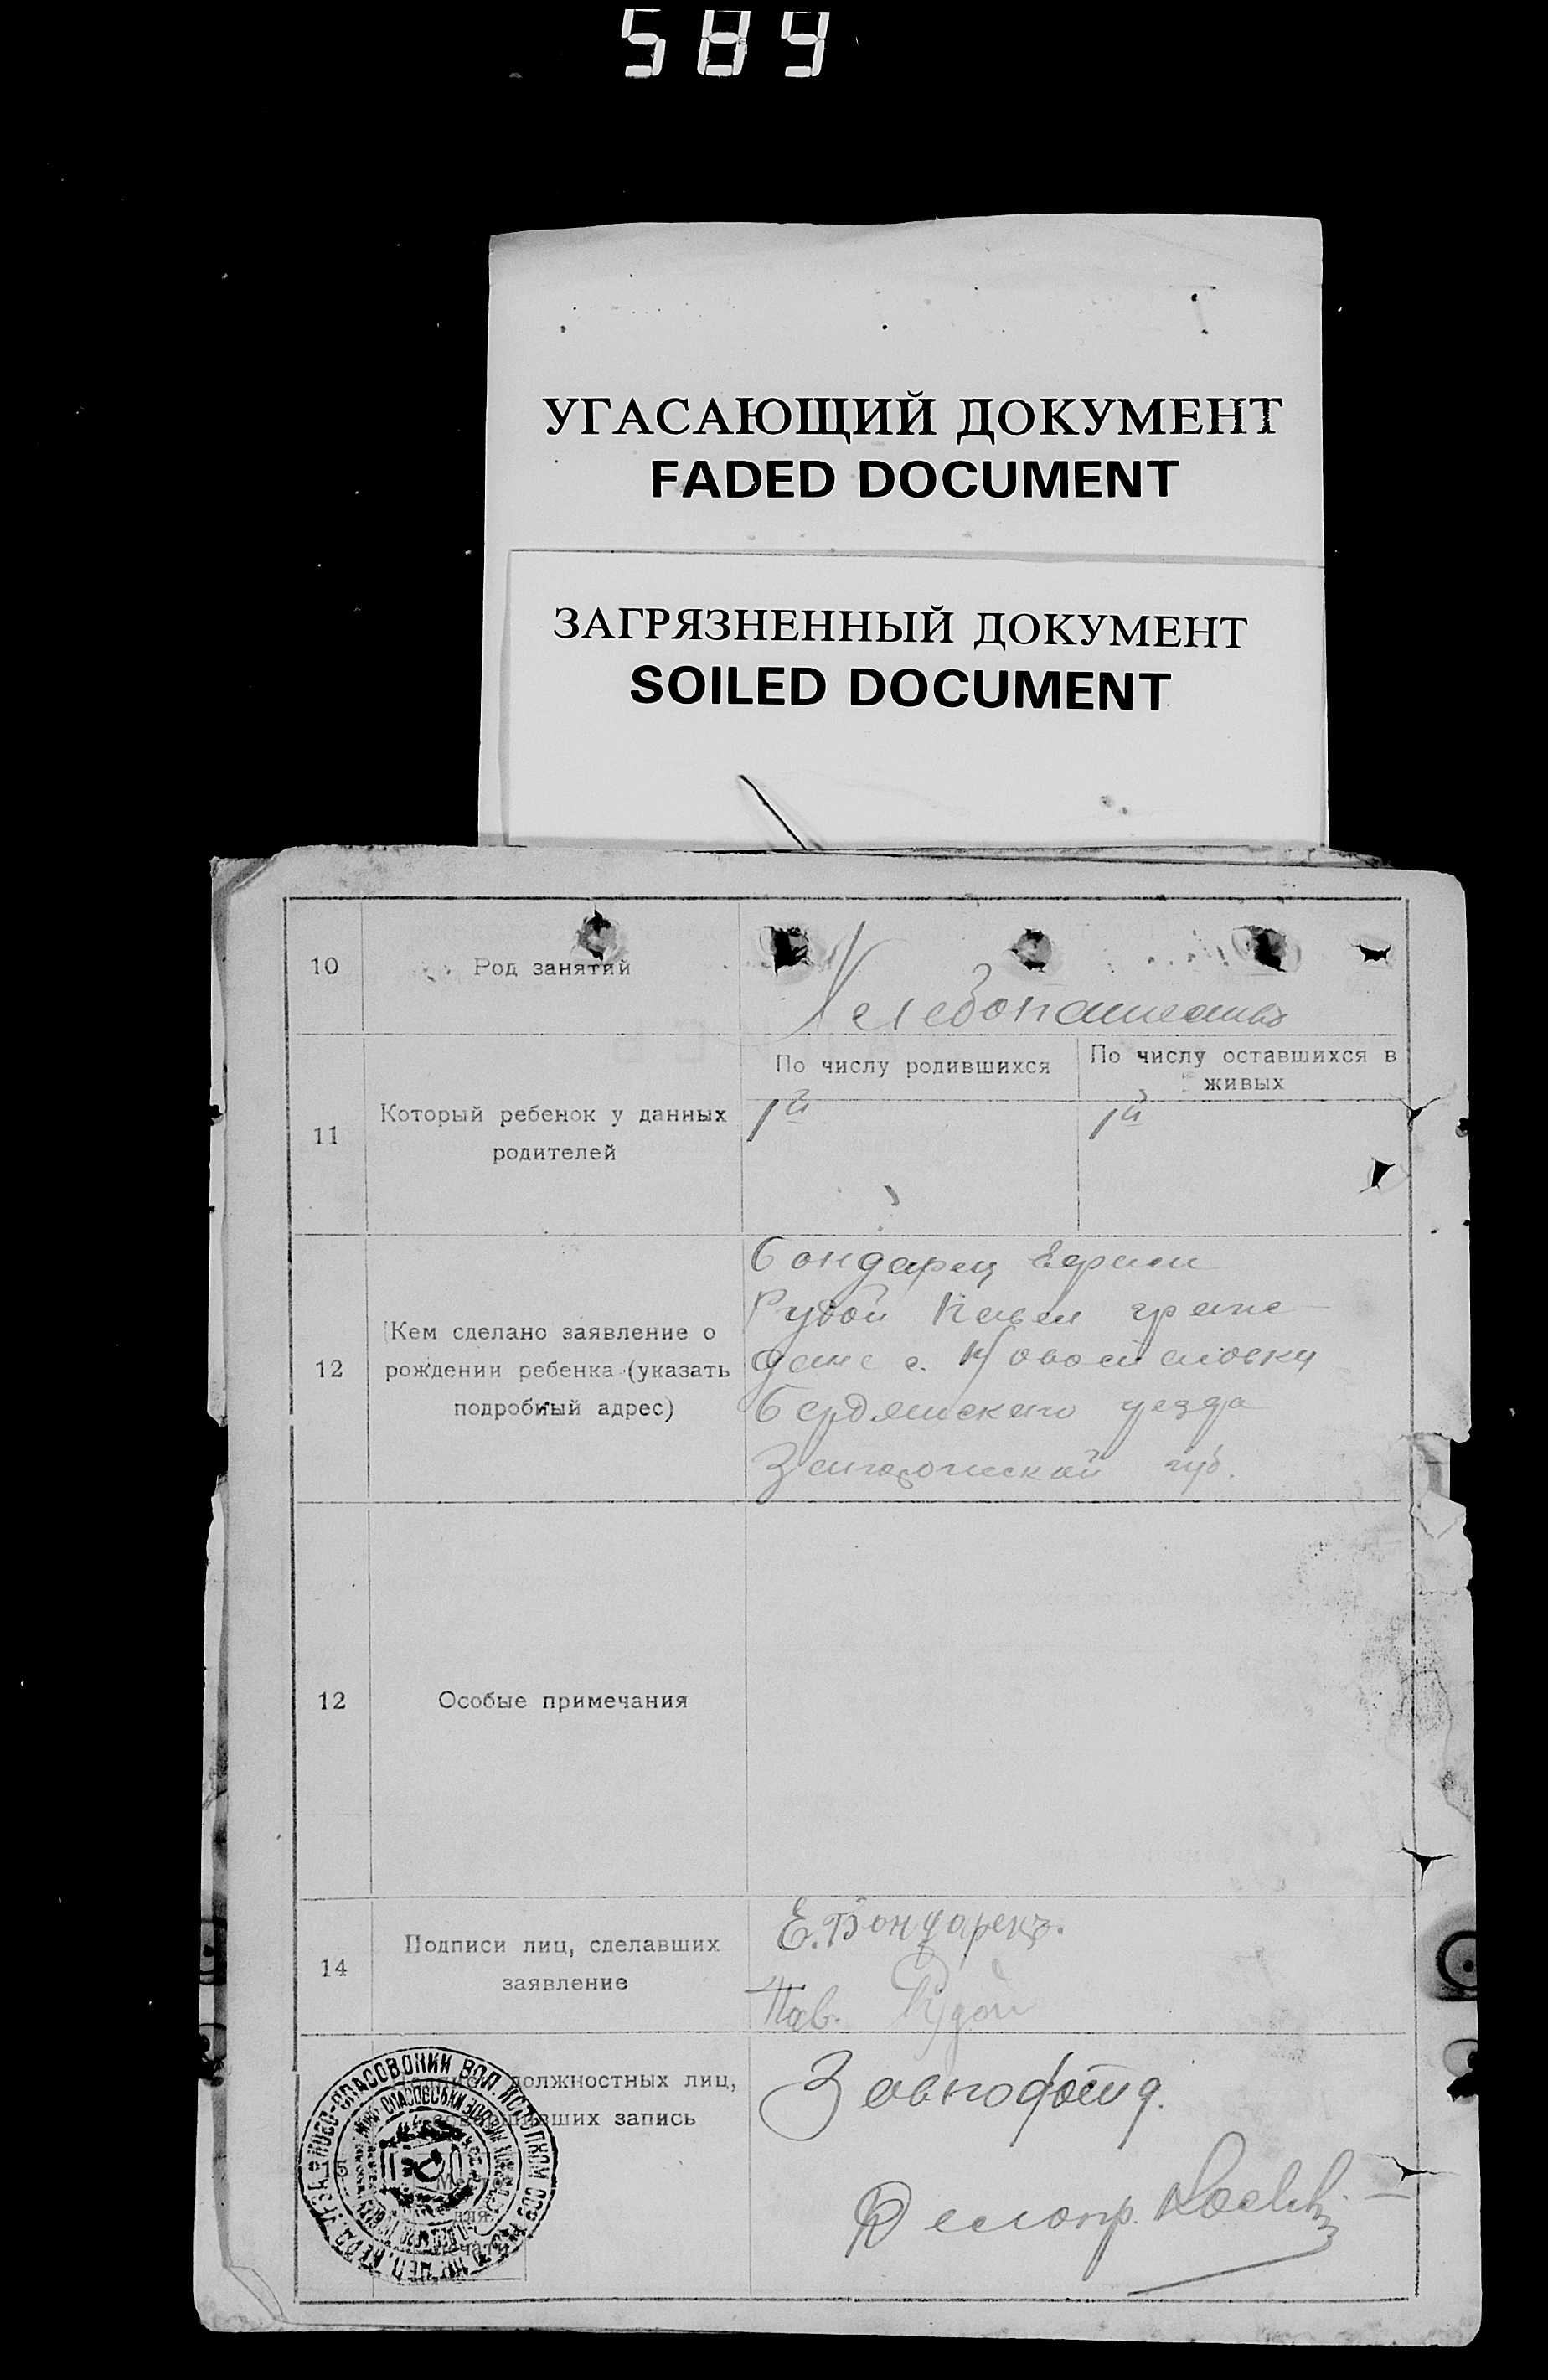 589
УГАСАЮЩИЙ ДОКУМЕНТ
FADED DOCUMENT
ЗАГРЯЗНЕННЫЙ ДОКУМЕНТ
SOILED DOCUMENT
10
Род занятий
Хлебопашество
11
Который ребенок у данных
родителей
По числу родившихся
По числу оставшихся в
живых
1й
1й
12
Кем сделано заявление о
рождении ребенка (указать
подробный адрес)
Бондарец
Рудой Павел граж
дане с. Новоспасовки
Бердянского уезда
губ.
12
Особые примечания
14
Подписи лиц, сделавших
заявление
Е. Бондарец.
Пав. Рудой
должностных лиц,
запись
15
Делопр.